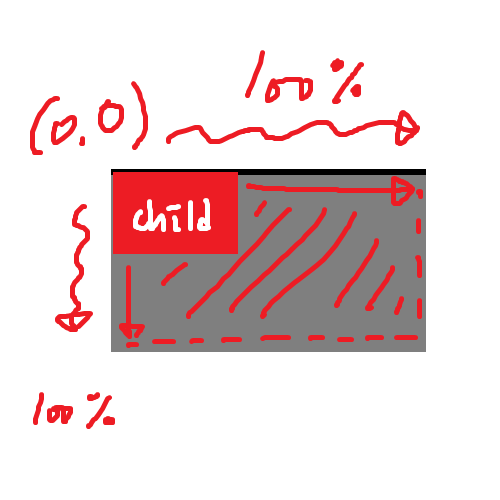 100%
(0,0)
child
100%